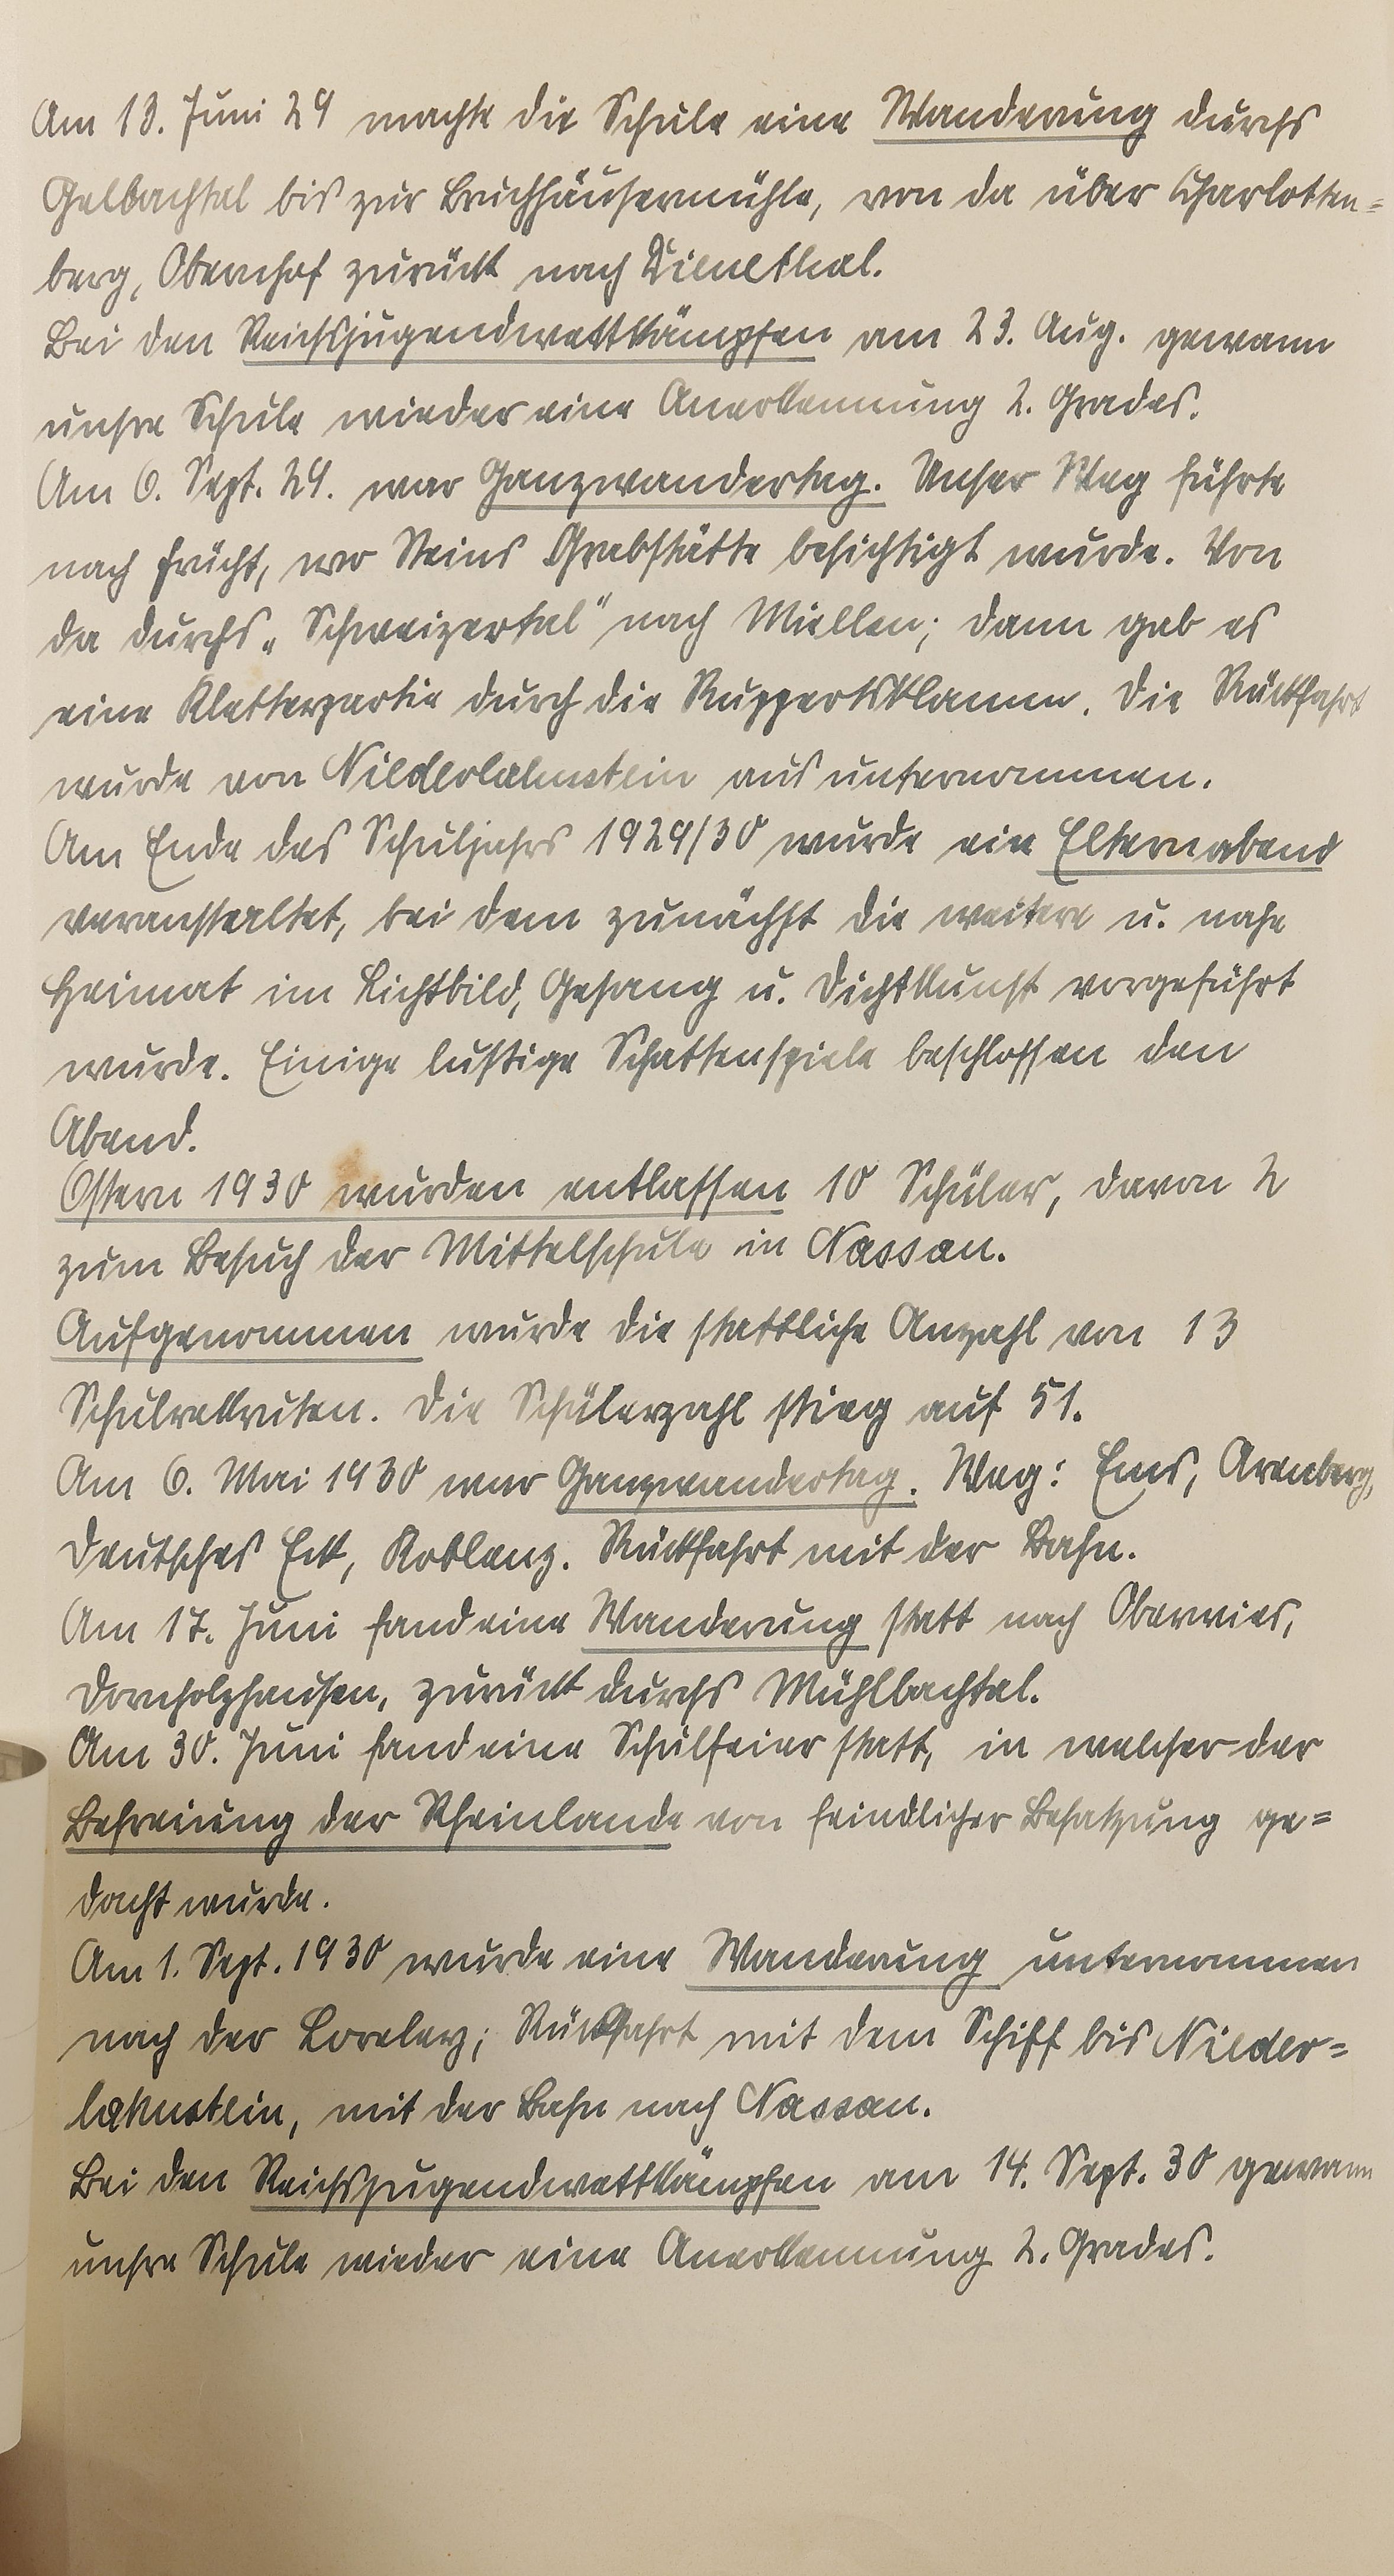 Am 13. Juni 29 machte die Schule eine Wanderung durchs
Gelbachtal bis zur Bruchhäusermühle, von da über Charlotten=
berg, Obernhof zurück nach Dienethal.
Bei den Reichsjugendwettkämpfen am 23. Aug. gewann
unsre Schule wieder eine Anerkennung 2. Grades.
Am 6. Sept. 29. war Ganzwandertag. Unser Weg führte
nach Frücht, wo Steins Grabstätte besichtigt wurde. Von
da durchs „Schweizertal“ nach Miellen; dann gab es
eine Kletterpartie durch die Ruppertsklamm. Die Rückfahrt
wurde von Niederlahnstein aus unternommen.
Am Ende des Schuljahrs 1929/30 wurde ein Elternabend
veranstaltet, bei dem zunächst die weitere u. nahe
Heimat im Lichtbild, Gesang u. Dichtkunst vorgeführt
wurde. Einige lustige Schattenspiele beschlossen den
Abend.
Ostern 1930 wurden entlassen 10 Schüler, davon 2
zum Besuch der Mittelschule in Nassau.
Aufgenommen wurde die stattliche Anzahl von 13
Schulrekruten. Die Schülerzahl stieg auf 51.
Am 6. Mai 1930 war Ganzwandertag. Weg: Ems, Arenberg,
Deutsches Eck, Koblenz. Rückfahrt mit der Bahn.
Am 17. Juni fand eine Wanderung statt nach Oberwies,
Dornholzhausen, zurück durchs Mühlbachtal.
Am 30. Juni fand eine Schulfeier statt, in welcher der
Befreiung der Rheinlande von feindlicher Besatzung ge=
dacht wurde.
Am 1. Sept. 1930 wurde eine Wanderung unternommen
nach der Loreley; Rückfahrt mit dem Schiff bis Nieder=
lahnstein, mit der Bahn nach Nassau.
Bei den Reichsjugendwettkämpfen am 14. Sept. 30 gewann
unsre Schule wieder eine Anerkennung 2. Grades.